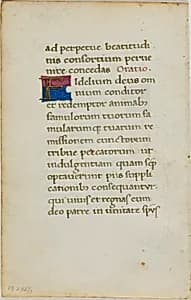 ad perpetue beatitudi
nis consortium perue
nire concedas Oratio.
Fidelium deus om
nium conditor
et redemptor animab
famulorum tuorum fa
mularumq tuarum re
missionem cunctorum
tribue peccatorum ut
indulgentiam quam sep
optauerunt piis suppli
cationib consequantur
qui uiuis et regnas cum
deo patre in unitate sps